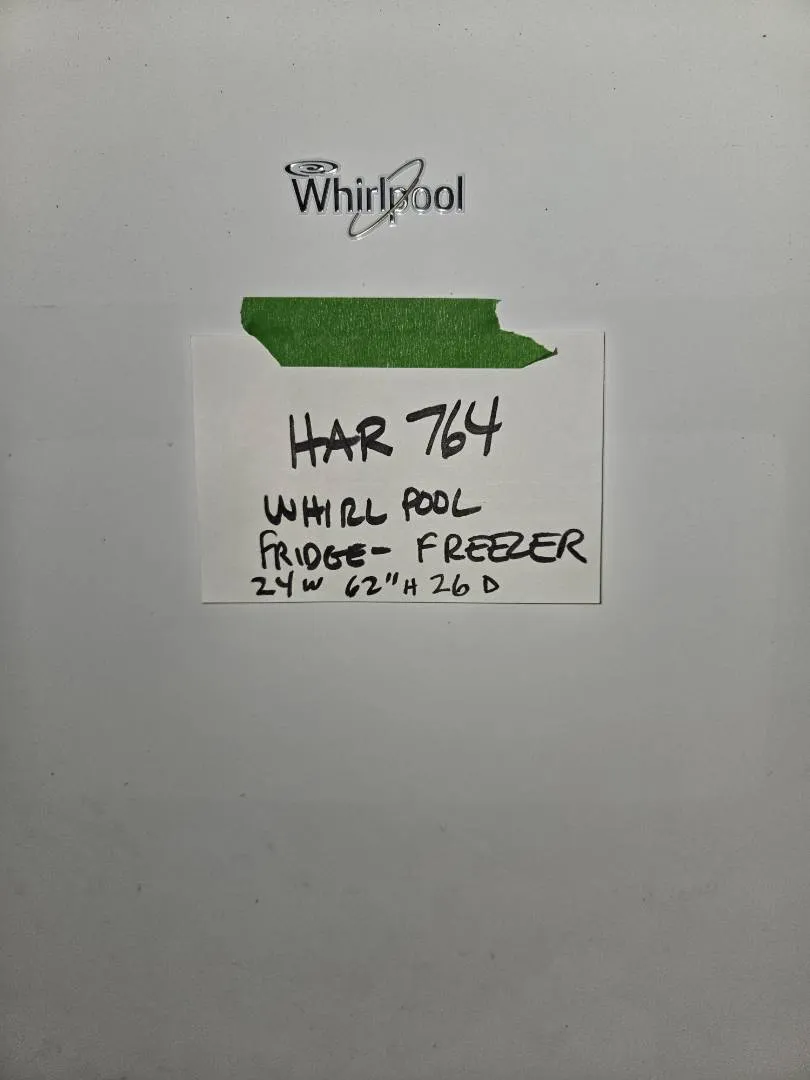 Whirlpool
HAR 764
WHIRL POOL
FRIDGE- FREEZER
24W 62"H 26 D